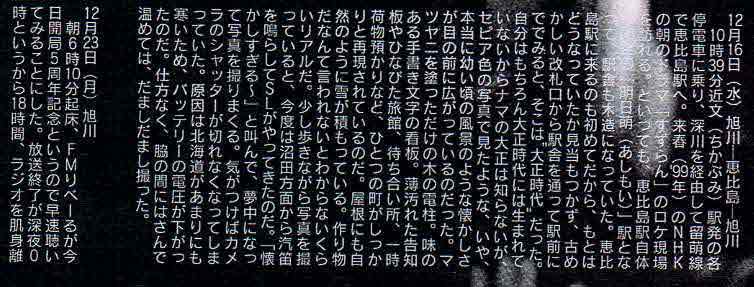 12月16日（水）旭川―恵比島―旭川
　10時39分近文（ちかぶみ）駅発の各
停電車に乗り、深川を経由して留萌線
で恵比島駅へ。来春（99年）のNHK
の朝のドラマ「すずらん」のロケ現場
を訪れる。といっても、恵比島駅自体
明日萌（あしもい）」駅とな
って、駅舎も木造になっていた。恵比
島駅に来るのも初めてだから、もとは
どうなっていたか見当もつかず、古め
かしい改札口から駅舎を通って駅前に
でてみると、そこは"大正時代"だった。
自分はもちろん大正時代には生まれて
いないからナマの大正は知らないが、
セピア色の写真で見たような、いや、
本当に幼い頃の風景のような懐かしさ
が目の前に広がっているのだった。マ
ツヤニを塗っただけの木の電柱。味の
ある手書き文字の看板。薄汚れた告知
板やひなびた旅館、待ち合い所、一時
荷物預かりなど、ひとつの町がしっか
りと再現されているのだ。屋根にも自
然のように雪が積もっている。作り物
だなんて言われないとわからないくら
いリアルだ。少し歩きながら写真を撮
っていると、今度は沼田方面から汽笛
を鳴らしてSLがやってきたのだ。「懐
かしすぎる～」と叫んで、夢中になっ
て写真を撮りまくる。気がつけばカメ
ラのシャッターが切れなくなってしま
っていた。原因は北海道があまりにも
寒いため、バッテリーの電圧が下がっ
たのだ。仕方なく、脇の間にはさんで
温めては、だましだまし撮った。
12月23日（月）旭川
　朝6時10分起床、FMりべーるが今
日開局5周年記念というので早速聴い
てみることにした。放送終了が深夜0
時というから18時間、ラジオを肌身離